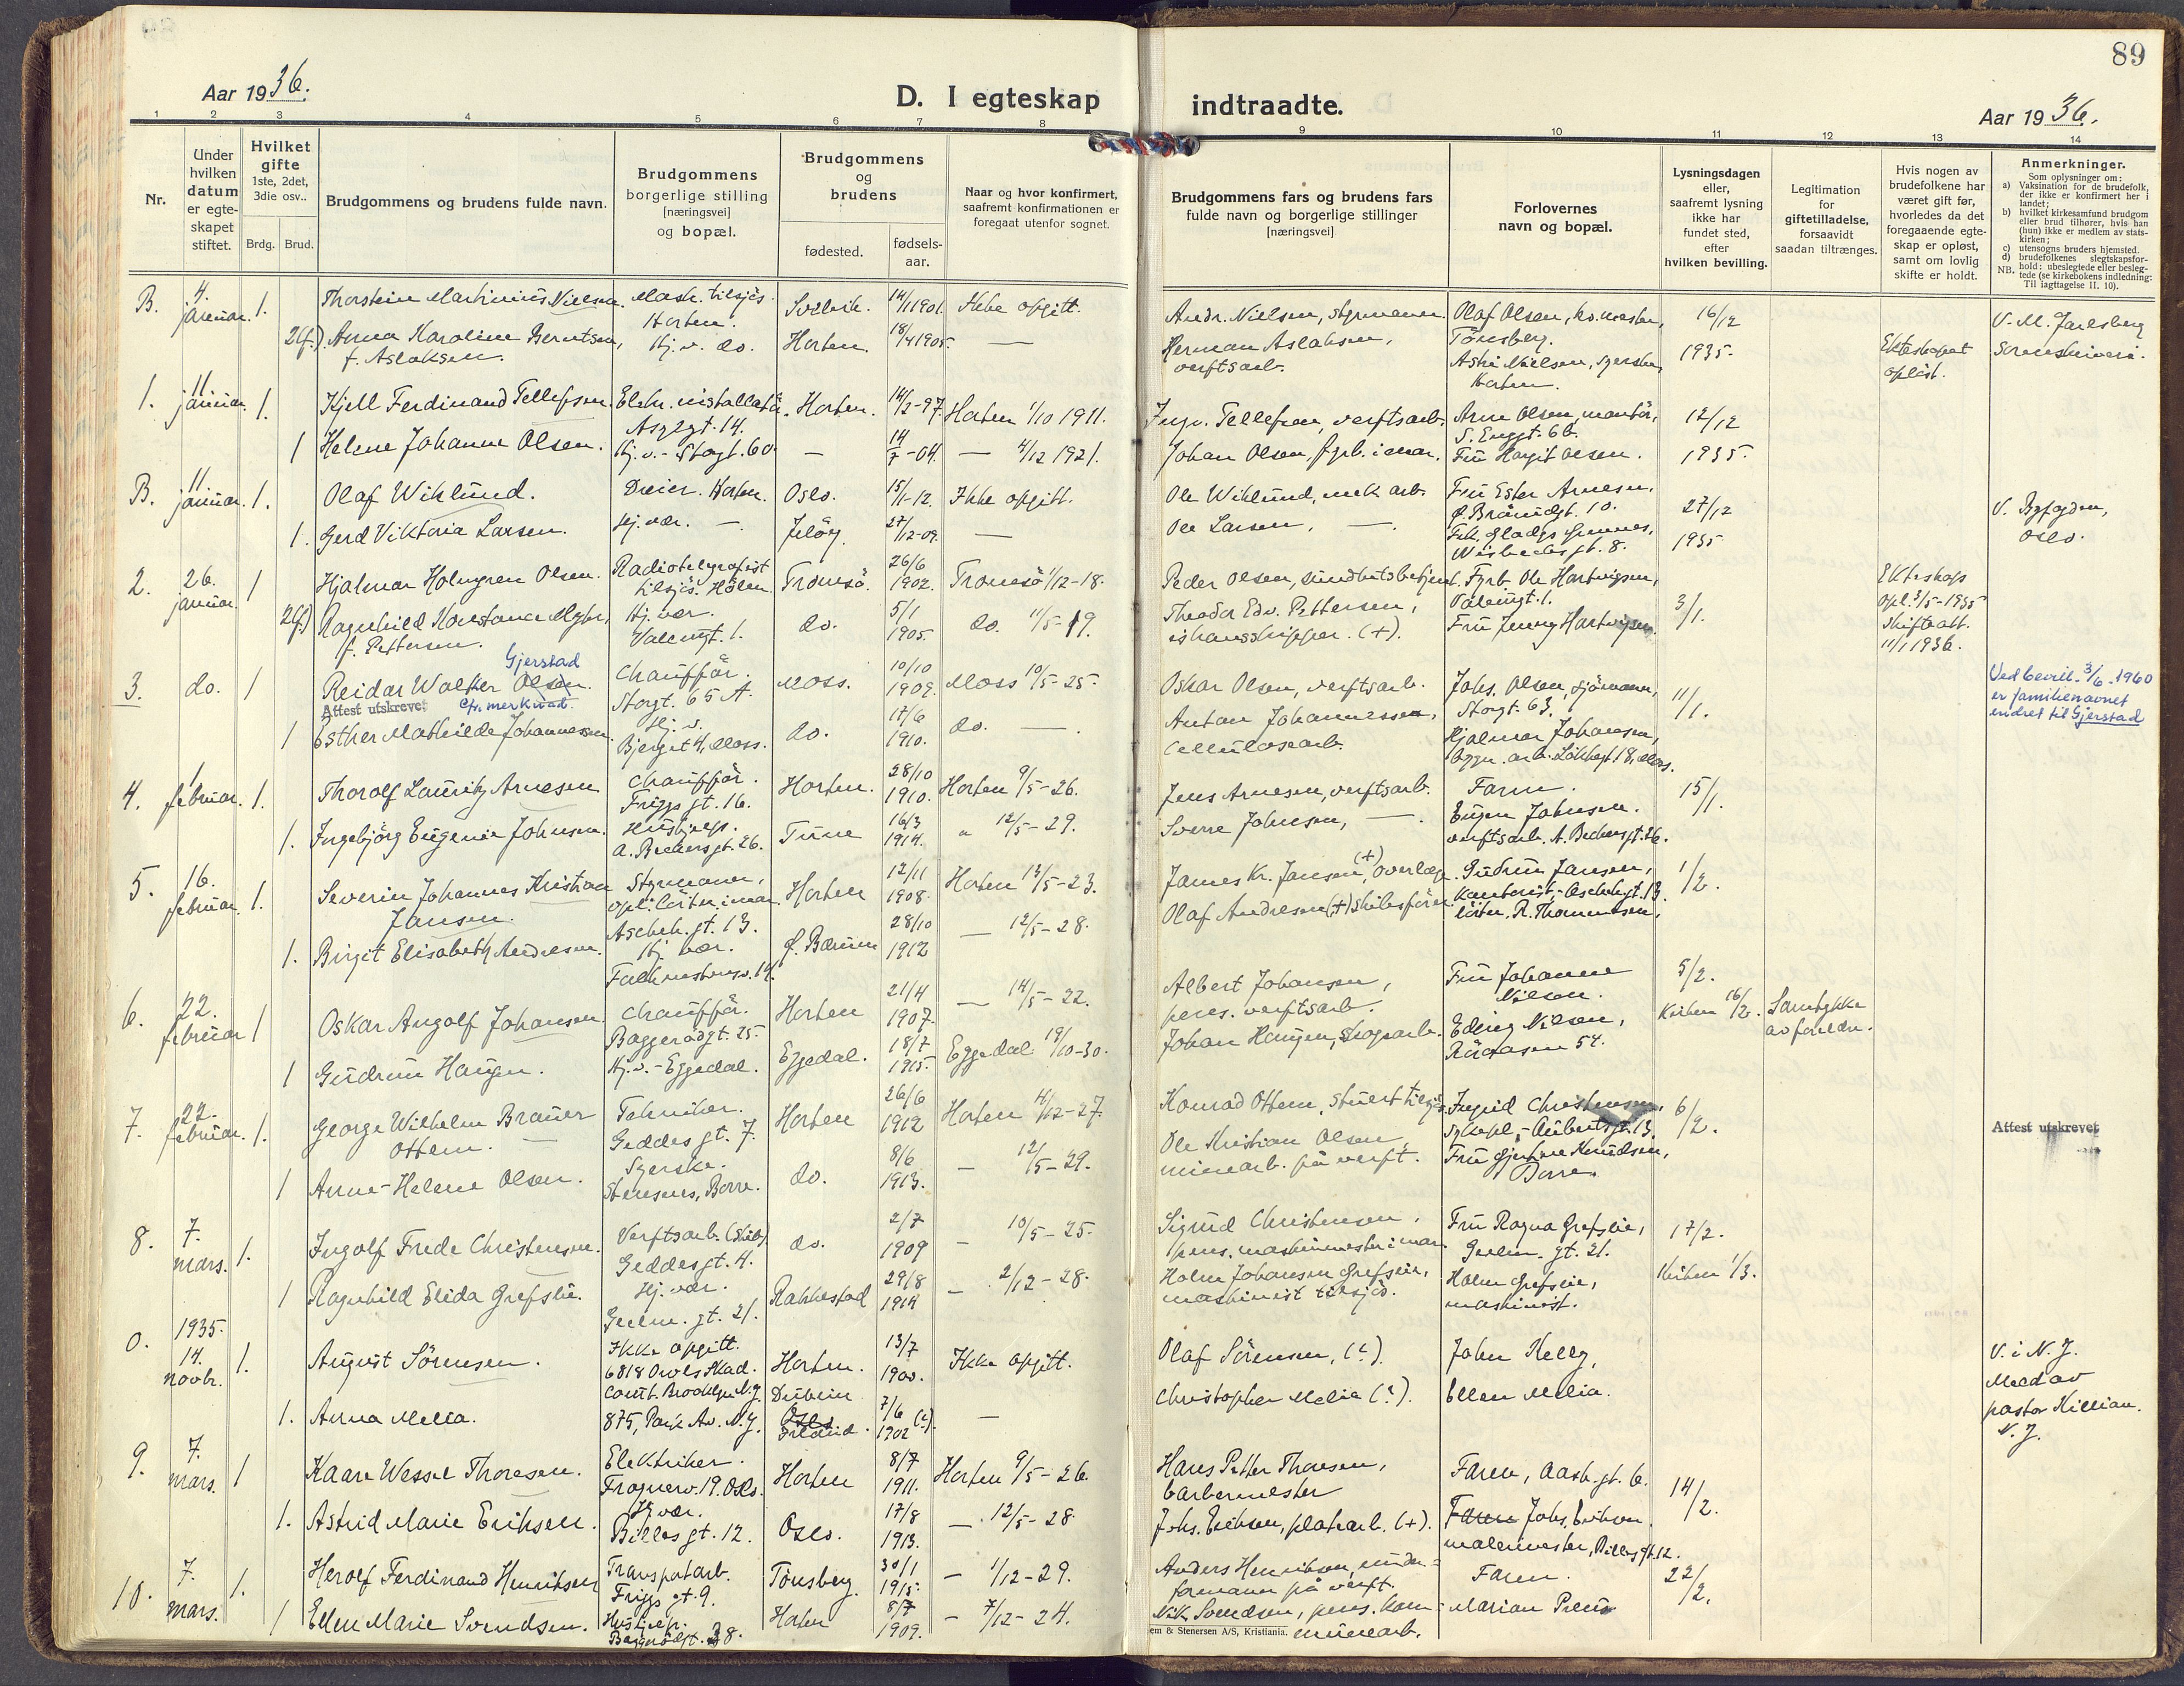 89
Aar 1936.
D. I egteskap
indtraadte.
Aar 1936.
1 2 3 4 5 6 7 8 9 10 11 12 13 14
Nr.
Under hvilken datum er egte-skapet stiftet.
Hvilket gifte 1ste, 2det, 3die osv..
Brdg. Brud.
Brudgommens og brudens fulde navn.
Brudgommens borgerlige stilling [næringsvei] og bopæl.
Brudgommens og brudens
fødested.
fødsels-aar.
Naar og hvor konfirmert, saafremt konfirmationen er foregaat utenfor sognet.
Brudgommens fars og brudens fars fulde navn og borgerlige stillinger [næringsvei]
Forlovernes navn og bopæl.
Lysningsdagen eller, saafremt lysning ikke har fundet sted, efter hvilken bevilling.
Legitimation for giftetilladelse, forsaavidt saadan tiltrænges.
Hvis nogen av brudefolkene har været gift før, hvorledes da det foregaaende egte-skap er opløst, samt om lovlig skifte er holdt.
Anmerkninger.
Som oplysninger om:
a) Vaksination for de brudefolk, der ikke er konfirmert her i landet;
b) hvilket kirkesamfund brudgom eller brud tilhører, hvis han (hun) ikke er medlem av stats-kirken;
c) utensogns bruders hjemsted.
d) brudefolkenes slegtskapsfor-hold: ubeslegtede eller besleg-tede (se kirkebokens indledning: Til iagttagelse II. 10).
NB.
B. 4. januar. 1. Thorstein Martinius Nielsen. Mask. tilsjös. Horten. Svelvik. 14/11901. Ikke opgitt. Andr. Nielsen, styrmann. Olaf Olsen, Tönsberg. 16/12 1935. V. M. Jarlsberg Sorenskriveri.
2(f.) Anna Karoline Berntsen, f. Aslaksen. Hj. v. do. Horten. 18/4 1905. — Herman Aslaksen, verftsarb. Nielsen, syerske, Horten. Ekteskapet oplöst.
1. 11. januar. 1. Kjell Ferdinand Tellefsen. Elektr. installatör. Horten. 14/2-97. Horten 1/10 1911. Ingv. Tellefsen, verftsarb. Arne Olsen, montör, 12/12 1935.
1 Helene Johanne Olsen. Hj. v. - Storgt. 60. — 14/7-04. — 4/12 1921. Johan Olsen, Fru Margit Olsen.
B. 11. januar. 1. Olaf Wiklund. Dreier. Horten. Oslo. 15/1-12. Ikke opgitt. Ole Wiklund, mek. arb. Fru Ester Arnesen, 27/12 1935 V. Byfogden, Oslo.
1. Gerd Viktoria Larsen. Hj. vær. — Jelöy. 27/12-09. — Ole Larsen, —
2. 26. januar. 1 Hjalmar Holmgren Olsen. Radiotelegrafist tilsjös. Tromsö. 26/6 1902. Tromsö 1/12-18. Peder Olsen, sundhetsbetjent. Fyrb. Ole Hartvigsen, 3/1. Ekteskap opl. 3/5-1935 skifteatt. 11/1 1936.
2(f) Ragnhild Konstanse Myhr, f. Pettersen. Hj. vær. do. 5/1 1905. do. 11/5-19. Theodor Edv. Pettersen, ishavsskipper. (+). Fru Jenny Hartvigsen.
3. do. 1 Reidar Walker Olsen. Gjerstad Cfr. merknad. Attest utskrevet Chaufför. Storgt. 65 A. Moss. 10/10 1909. Moss 10/5-25. Oskar Olsen, verftsarb. Johs. Olsen, sjömann, Storgt. 63. 11/1. Ved bevill. 3/6-1960 er familienavnet endret til Gjerstad
1 Esther Mathilde Johannessen. Hj. v. Moss. do. 17/6 1910. do. —. Anton Johannessen, cellulosearb. Hjalmar Johansen,
4. 1 februar. 1. Thorolf Lauritz Arnesen Chaufför. Friggs gt. 16. Horten. 28/10 1910. Horten 9/5-26. Jens Arnesen, verftsarb. Faren. 15/1.
1. Ingebjörg Eugenie Johnsen. Hushjelp. A. Bechersgt. 26. Tune 16/3 1914. " 12/5-29. Sverre Johnsen, —. Eugen Johnsen. verftsarb. A. Bechersgt. 26.
5. 16. februar. 1. Severin Johannes Kristian Jansen. Styrmann, Ascheh. gt. 13. Horten 12/11 1908. Horten 13/5-23. James Kr. Jansen, (+) Gudrun Jansen, 1/2.
1. Birgit Elisabeth Andresen. Hj. vær. 28/10 1912 — 12/5-28. Olaf Andresen (+) skibsförer
6. 22. februar 1 Oskar Angolf Johansen. Chaufför. Baggerødgt. 25. Horten 21/4 1907. — 14/5-22. Albert Johansen, pens. verftsarb. Fru Johanne Nilsen. 5/2. Kirken 16/2. Samtykke av foreldre.
1 Gudrun Haugen. Hj. v. - Eggedal. Eggedal. 18/7 1915. Eggedal 19/10-30. Johan Haugen, skogsarb. Nilsen,
7. 22. februar. 1. George Wilhelm Brauer Ottem. Tekniker. Geddes gt. 7. Horten 26/6 1912 Horten 4/12-27. Konrad Ottem, stuert tilsjös. Ingrid Christensen, 6/2. Attest utskrevet
1 Anne-Helene Olsen. Syerske. Borre. do. 8/6 1913. — 12/5-29. Ole Kristian Olsen, minearb. på verft. Fru Knudsen, Borre.
8. 7. mars. 1. Ingolf Frede Christensen. Verftsarb. Geddes gt. 4. do. 2/7 1909 — 10/5-25. Sigurd Christensen. pens. maskinmester i mar. Fru Ragna Grefslie, gt. 21. 17/2. Kirken 1/3.
1 Ragnhild Elida Grefslie. Hj. vær. gt. 21. Rakkestad 29/8 1914 — 2/12-28. Holm Johansen Grefslie, maskinist tilsjös. Holm Grefslie, maskinist.
0. 1935. 14. novbr. 1. August Sörensen. Ikke opgitt. 6818 Court. Brooklyn N.Y. Horten. 13/7 1900. Ikke opgitt. Olaf Sörensen, (?). John Kelly, V. i N.Y. Meld av pastor Killian. N.Y.
1. Anna Melia. 875, Park Av. N.Y. Dublin Irland. 7/6 1902 (?). — Christopher Melia (?). Ellen Melia.
9. 7. mars. 1 Kaare Wessel Thoresen. Elektriker. Frognerv. 19. Oslo. Horten 8/7 1911. Horten 9/5-26. Hans Petter Thoresen, barbermester Faren, 14/2.
1. Astrid Marie Eriksen. Hj. vær. Billes gt. 12. Oslo. 17/8 1913. — 12/5-28. Johs. Eriksen, platearb. (+). Faren Johs. Eriksen. malermester, Billes gt. 12.
10. 7. mars. 1. Herolf Ferdinand Henriksen Transportarb. Friggs gt. 9. Tönsberg. 30/1 1915. — 1/12-29. Anders Henriksen, under-formann på verft. Faren. 22/2.
1 Ellen Marie Svendsen. Hushjelp. Horten 8/7 1909. — 7/12-24. Nik. Svendsen, pens. kom-minearb. Marian
em & Stenersen A/S, Kristiania.